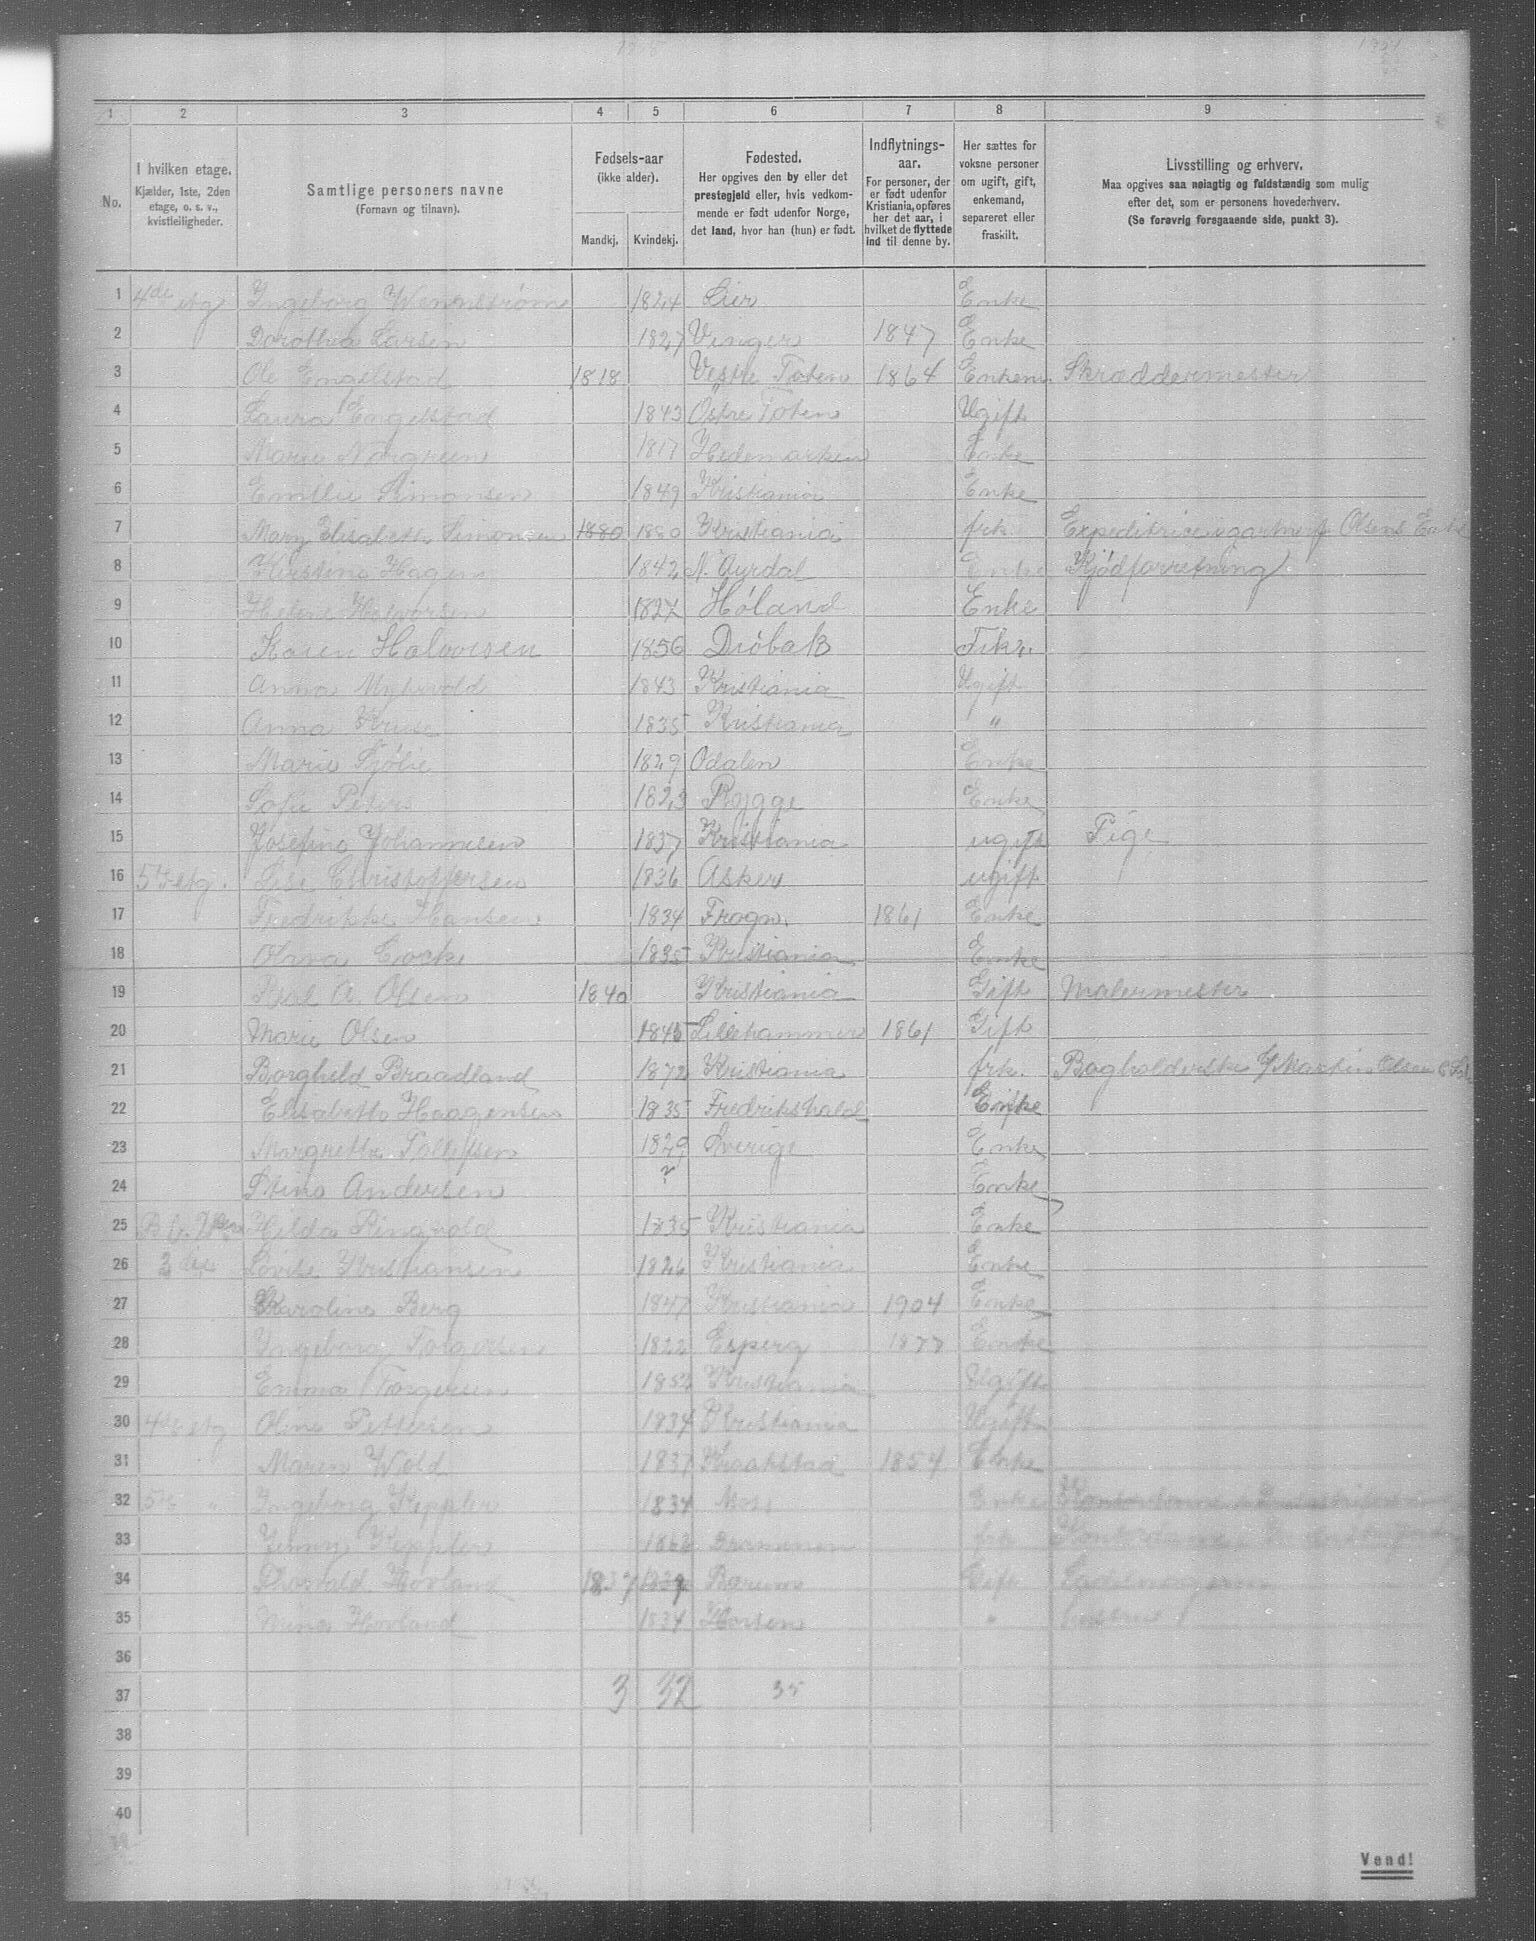 1 2 3 4 5 6 7 8 9
No.
I hvilken etage.
Kjælder, 1ste, 2den
etage, o. s. v.,
kvistleiligheder.
Samtlige personers navne
(Fornavn og tilnavn).
Fødsels-aar
(ikke alder).
Mandkj. Kvindekj.
Fødested.
Her opgives den by eller det
prestegjeld eller, hvis vedkom-
mende er født udenfor Norge,
det land, hvor han (hun) er født.
Indflytnings-
aar.
For personer, der
er født udenfor
Kristiania, opføres
her det aar, i
hvilket de flyttede
ind til denne by.
Her sættes for
voksne personer
om ugift, gift,
enkemand,
separeret eller
fraskilt.
Livsstilling og erhverv.
Maa opgives saa nøiagtig og fuldstændig som mulig
efter det, som er personens hovederhverv.
(Se forøvrig foregaaende side, punkt 3).
1 4de etg Ingeborg Wennstrøm 1824 Lier Enke
2 Dorothea Larsen 1827 Vinger 1847 Enke
3 Ole Engelstad 1818 Vestre Toten 1864 Enkem. Skræddermester
4 Laura Engelstad 1843 Østre Toten Ugift
5 Marie Norgreen 1817 Hedemarken Enke
6 Emilie Simonsen 1849 Kristiania Enke
7 Mary Elisabeth Simonsen 1880 1880 Kristiania frk. Expeditrice Olsens Enke
8 Kirstine Hagen 1842 N. Aurdal Enke Kjødforretning
9 Helene Halvorsen 1827 Høland Enke
10 Karen Halvorsen 1856 Drøbak Frkr.
11 Anna Myhrvold 1843 Kristiania Ugift
12 Anna Kruse 1835 Kristiania "
13 Marie Sjølie 1829 Odalen Enke
14 Sofie Peters 1823 Rygge Enke
15 Josefine Johannesen 1837 Kristiania ugift Pige
16 5te etg. Lise Christoffersen 1836 Asker ugift
17 Fredrikke Hansen 1834 Frogn. 1861 Enke
18 Olava Cock 1835 Kristiania Enke
19 A. Olsen 1840 Kristiania Gift Malermester
20 Marie Olsen 1845 Lillehammer 1861 Gift
21 Borghild Braadland 1872 Kristiania frk. Bogholderske Martin Olsen
22 Elisabeth Haagensen 1835 Fredrikshald Enke
23 Margrethe Tollefsen 1829 Sverige Enke
24 Stina Andersen ? Enke
25 Hilda Ringvold 1835 Kristiania Enke
26 Lovise Kristiansen 1826 Kristiania Enke
27 Karoline Berg 1847 Kristiania 1904 Enke
28 Ingeborg Torgersen 1822 Esperg 1877 Enke
29 Emma Torgersen 1852 Kristiania Ugift
30 4de etg Oline Pettersen 1834 Kristiania Ugift
31 Maren Wold 1837 Kraakstad 1854 Enke
32 5te " Ingeborg Keppler 1834 Moss Enke
33 Jenny Keppler 1862 Drammen frk
34 Thorvald Hovland 1837 1839 Bærum Gift
35 Nina Hovland 1834 Horten "
36
37 3 32 35
38
39
40
Vend!